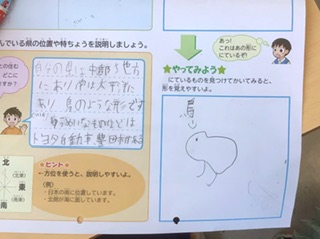 んでいる県の位置や特ちょうを説明しましょう。
自分の県は中部ち方
にあり南は太平洋
あり鳥のような形です
有名なものなどは
トヨタ自動車
北
(北東)
(南東)
南
★ヒント
方位を使うと、説明しやすいよ。
(例)
・日本の南に位置しています。
・北側が海に面しています。
あっ!
これはあの形に
にているぞ!
★やってみよう
にているものを見つけてかいてみると、
形を覚えやすいよ。
鳥